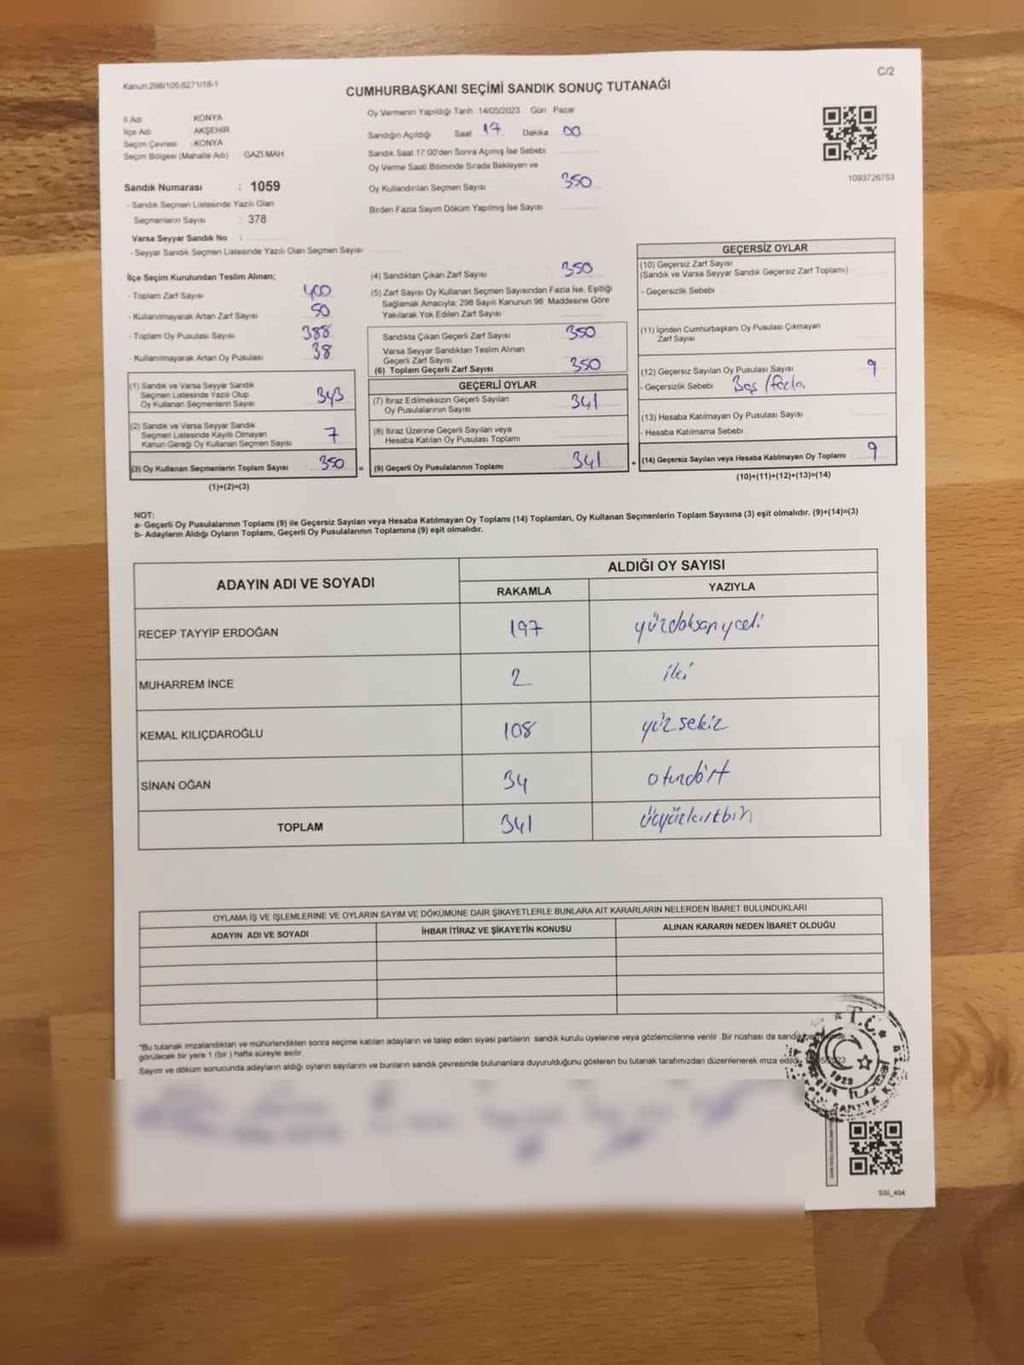 Kanun:298/105:6271/18-1
C/2
CUMHURBAŞKANI SEÇİMİ SANDIK SONUÇ TUTANAĞI
İl Adı KONYA
İlçe Adı AKŞEHİR
Seçim Çevresi : KONYA
Seçim Bölgesi (Mahalle Adı) GAZİ MAH
Sandık Numarası : 1059
- Sandık Seçmen Listesinde Yazılı Olan
Seçmenlerin Sayısı : 378
Varsa Seyyar Sandık No :
- Seyyar Sandık Seçmen Listesinde Yazılı Olan Seçmen Sayısı
Oy Vermenin Yapıldığı Tarih 14/05/2023 Gün Pazar
Sandığın Açıldığı Saat 17 Dakika 00
Sandık Saat 17:00'den Sonra Açılmış İse Sebebi
Oy Verme Saati Bitiminde Sırada Bekleyen ve
Oy Kullandırılan Seçmen Sayısı 350
Birden Fazla Sayım Döküm Yapılmış İse Sayısı
1093726753
İlçe Seçim Kurulundan Teslim Alınan;
- Toplam Zarf Sayısı 400
- Kullanılmayarak Artan Zarf Sayısı 50
- Toplam Oy Pusulası Sayısı 388
- Kullanılmayarak Artan Oy Pusulası 38
(1) Sandık ve Varsa Seyyar Sandık
Seçmen Listesinde Yazılı Olup
Oy Kullanan Seçmenlerin Sayısı 343
(2) Sandık ve Varsa Seyyar Sandık
Seçmen Listesinde Kayıtlı Olmayan
Kanun Gereği Oy Kullanan Seçmen Sayısı 7
(3) Oy Kullanan Seçmenlerin Toplam Sayısı 350 =
(1)+(2)=(3)
(4) Sandıktan Çıkan Zarf Sayısı 350
(5) Zarf Sayısı Oy Kullanan Seçmen Sayısından Fazla İse, Eşitliği
Sağlamak Amacıyla; 298 Sayılı Kanunun 98. Maddesine Göre
Yakılarak Yok Edilen Zarf Sayısı
Sandıkta Çıkan Geçerli Zarf Sayısı 350
Varsa Seyyar Sandıktan Teslim Alınan
Geçerli Zarf Sayısı
(6) Toplam Geçerli Zarf Sayısı 350
GEÇERLİ OYLAR
(7) İtiraz Edilmeksizin Geçerli Sayılan
Oy Pusulalarının Sayısı 341
(8) İtiraz Üzerine Geçerli Sayılan veya
Hesaba Katılan Oy Pusulası Toplamı
(9) Geçerli Oy Pusulalarının Toplamı 341 +
GEÇERSİZ OYLAR
(10) Geçersiz Zarf Sayısı
(Sandık ve Varsa Seyyar Sandık Geçersiz Zarf Toplamı)
- Geçersizlik Sebebi
(11) İçinden Cumhurbaşkanı Oy Pusulası Çıkmayan
Zarf Sayısı
(12) Geçersiz Sayılan Oy Pusulası Sayısı 9
- Geçersizlik Sebebi Boş / Fazla
(13) Hesaba Katılmayan Oy Pusulası Sayısı
- Hesaba Katılmama Sebebi
(14) Geçersiz Sayılan veya Hesaba Katılmayan Oy Toplamı 9
(10)+(11)+(12)+(13)=(14)
NOT:
a- Geçerli Oy Pusulalarının Toplamı (9) ile Geçersiz Sayılan veya Hesaba Katılmayan Oy Toplamı (14) Toplamları, Oy Kullanan Seçmenlerin Toplam Sayısına (3) eşit olmalıdır. (9)+(14)=(3)
b- Adayların Aldığı Oyların Toplamı, Geçerli Oy Pusulalarının Toplamına (9) eşit olmalıdır.
ADAYIN ADI VE SOYADI
ALDIĞI OY SAYISI
RAKAMLA YAZIYLA
RECEP TAYYİP ERDOĞAN 197 yüzdoksanyedi
MUHARREM İNCE 2 iki
KEMAL KILIÇDAROĞLU 108 yüzsekiz
SİNAN OĞAN 34 otuzdört
TOPLAM 341 üçyüzkırkbir
OYLAMA İŞ VE İŞLEMLERİNE VE OYLARIN SAYIM VE DÖKÜMÜNE DAİR ŞİKAYETLERLE BUNLARA AİT KARARLARIN NELERDEN İBARET BULUNDUKLARI
ADAYIN ADI VE SOYADI İHBAR İTİRAZ VE ŞİKAYETİN KONUSU ALINAN KARARIN NEDEN İBARET OLDUĞU
"Bu tutanak imzalandıktan ve mühürlendikten sonra seçime katılan adayların ve talep eden siyasi partilerin sandık kurulu üyelerine veya gözlemcilerine verilir. Bir nüshası da
görülecek bir yere 1 (bir) hafta süreyle asılır.
Sayım ve döküm sonucunda adayların aldığı oyların sayılarını ve bunların sandık çevresinde bulunanlara duyurulduğunu gösteren bu tutanak tarafımızdan düzenlenerek imza
T.C.
1923
SSI_404